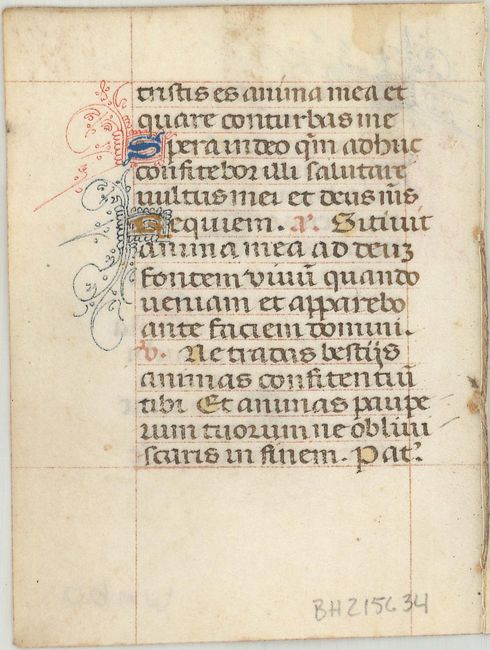 tristis es anima mea et
quare conturbas me
Spera in deo qm̄ adhuc
confitebor illi salutare
uultus mei et deus m̄s
Requiem. A. Sitiuit
anima mea ad deuȝ
fontem viuū quando
ueniam et apparebo
ante faciem domini.
V. Ne tradas bestijs
animas confitentiū
tibi Et animas paupe
rum tuorum ne obliui
scaris in finem. Pat̄.
BH215634